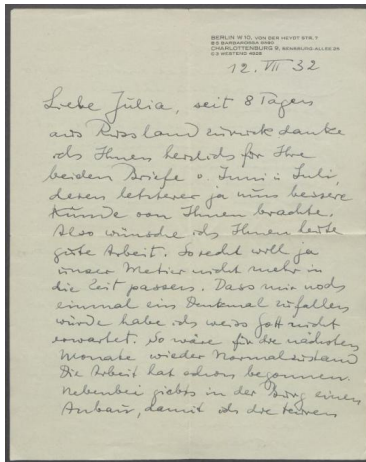 BERLIN W 10, VON DER HEYDT STR. 7
B 5 BARBAROSSA
CHARLOTTENBURG 9, SENSBURG ALLEE
C 3 WESTEND
12. VII 32
Liebe Julia, seit 8 Tagen
aus Russland zurück danke
ich Ihnen herzlich für Ihre
beiden Briefe v. Juni u. Juli,
deren letzterer ja nun bessere
Kunde von Ihnen brachte.
Also wünsche ich Ihnen
gute Arbeit. So recht will ja
unser Metier nicht mehr in
die Zeit passen. Dass mir noch
einmal ein Denkmal zufallen
würde habe ich weiss Gott nicht
erwartet. So wäre für die nächsten
Monate wieder Normalzustand
Die Arbeit hat schon begonnen.
Nebenbei giebts in der Burg einen
Anbau, damit ich die